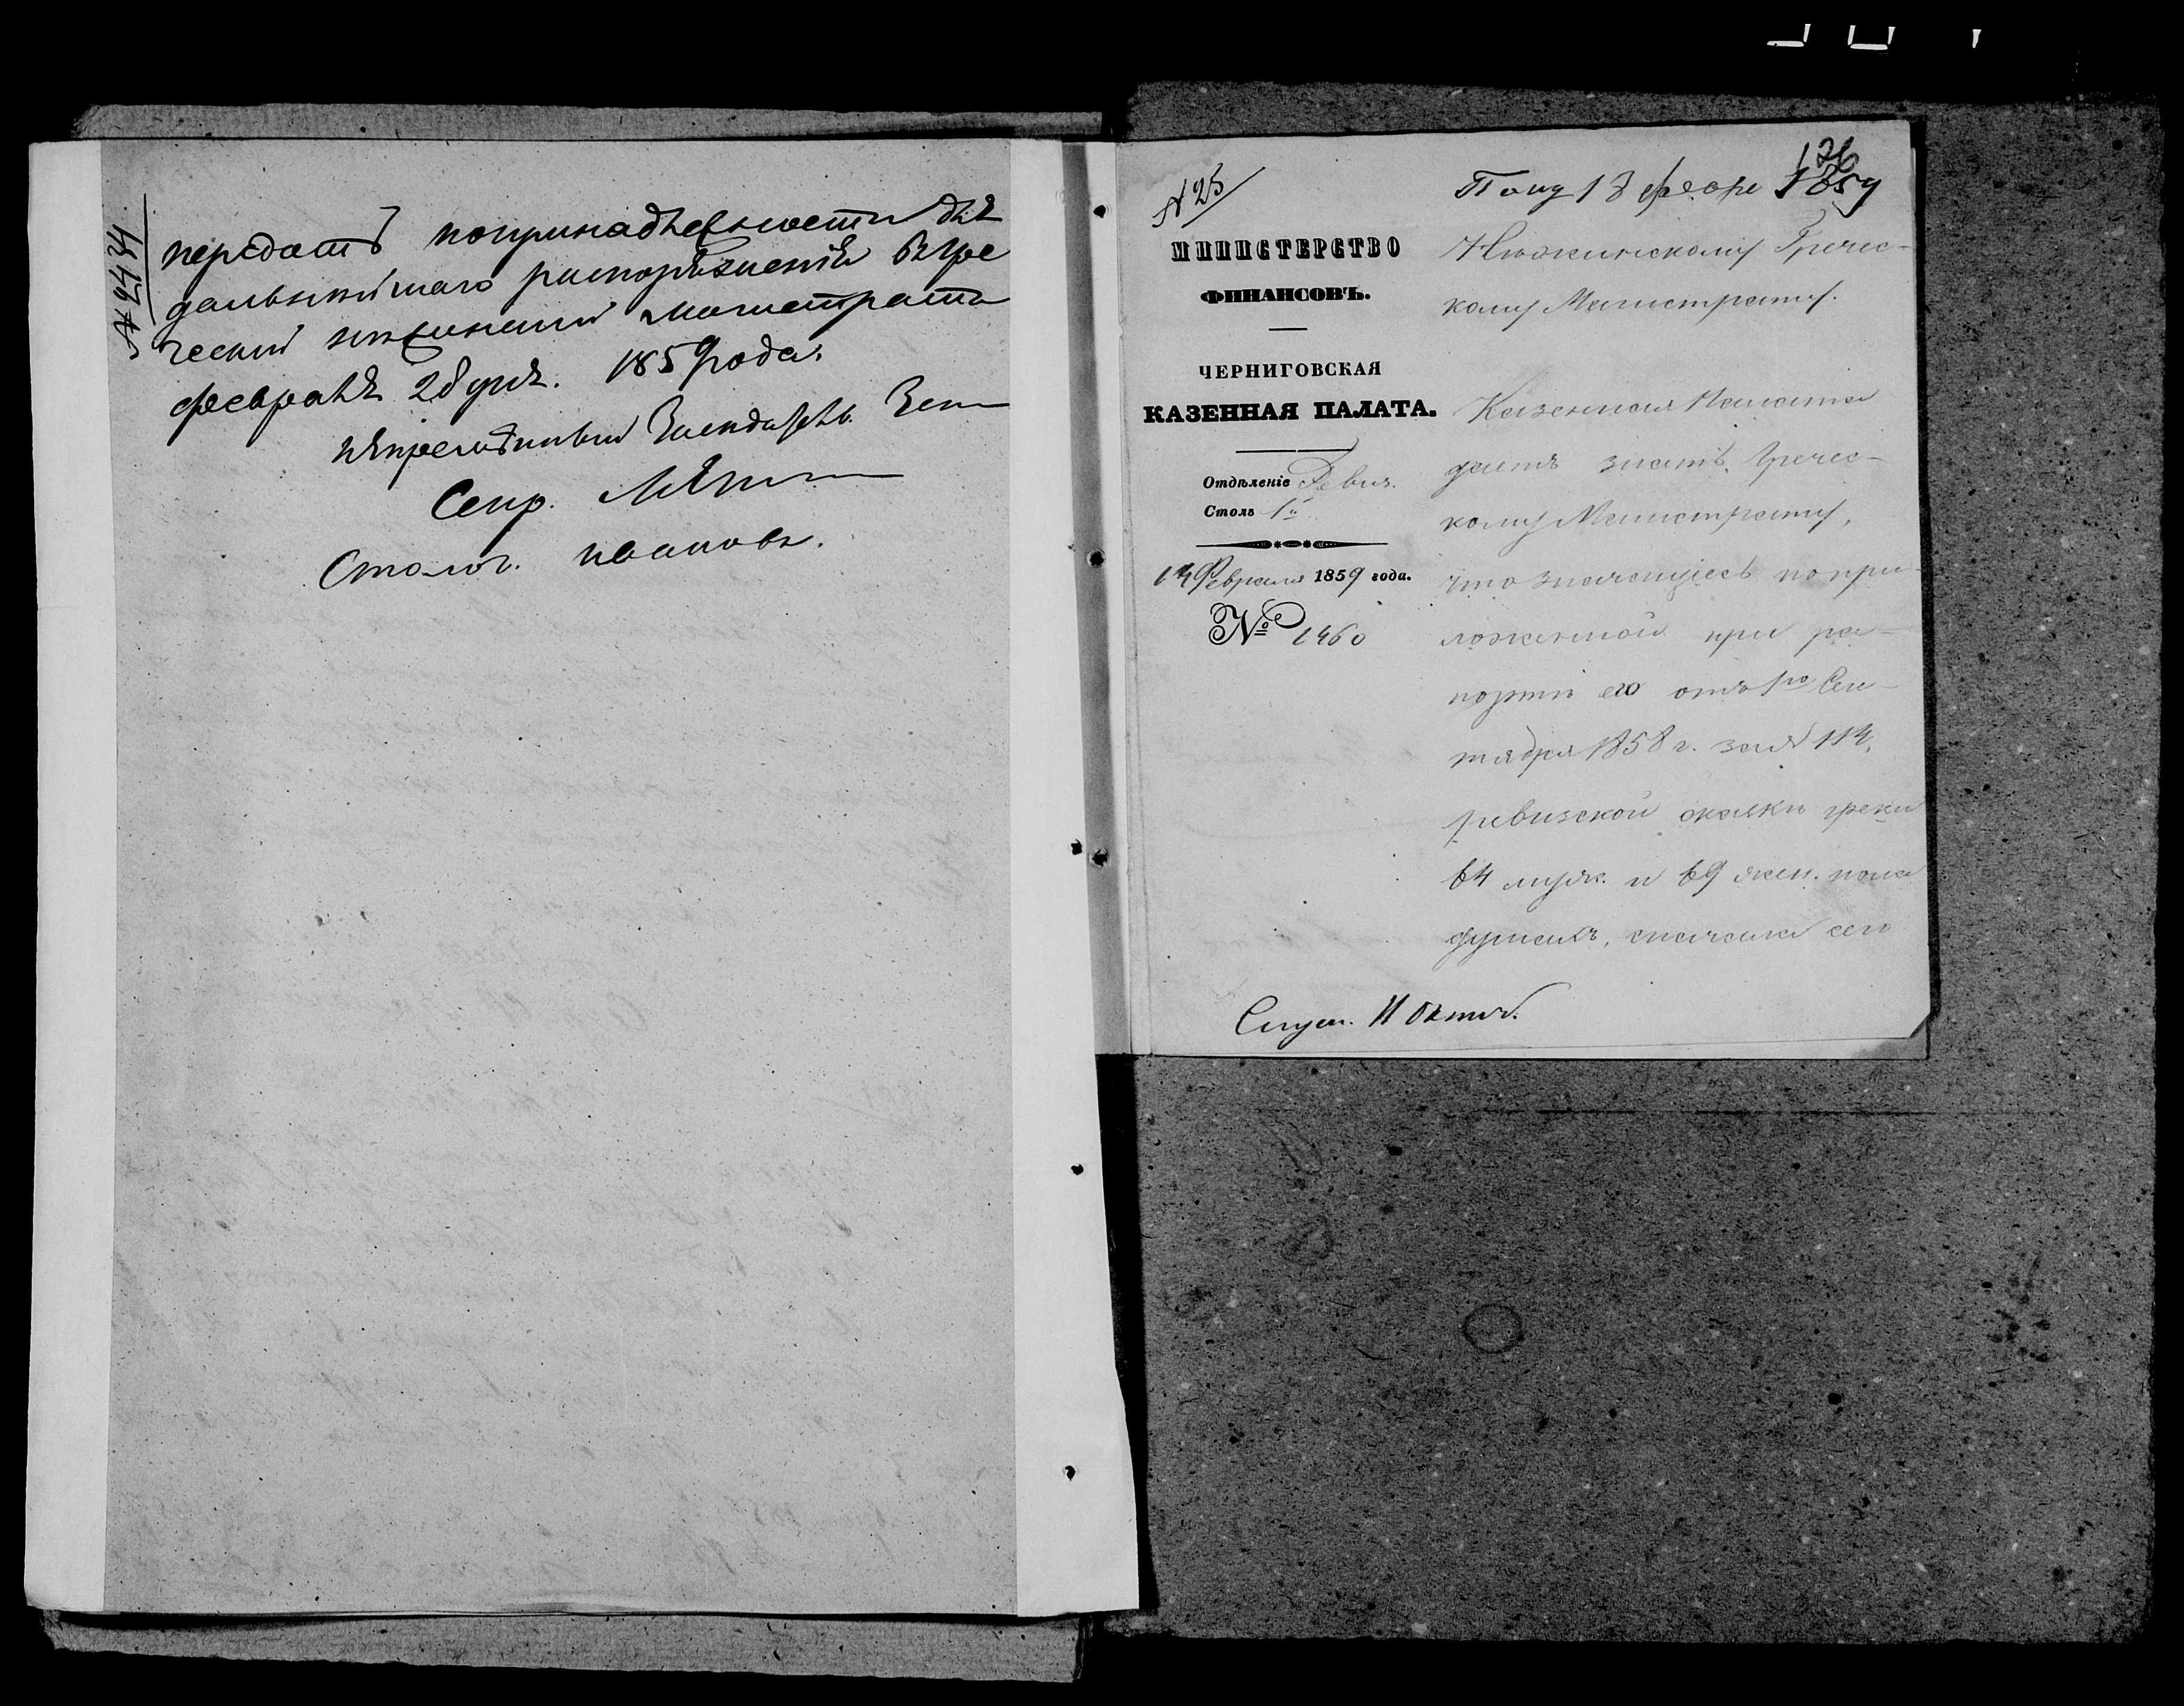 № 2434
передать по принадлежности для
дальнейшаго распоряжения въ Гре
ческий нежинский магистратъ
февраля 28 дня. 1859 года.
Секр.
Столон. Ивановъ.
126
№ 25
Полу 18 февр 1859
МИНИСТЕРСТВО
ФИНАНСОВЪ.
ЧЕРНИГОВСКАЯ
КАЗЕННАЯ ПАЛАТА.
Отдѣленіе Ревиз.
Столъ 1й
14 Февраля 1859 года.
№ 1460
Нѣжинскому Гречес-
кому Магистрату.
Казенная Палата
даетъ знать Гречес-
кому Магистрату,
что значащіеся по при-
ложенной при ра-
портѣ его отъ 1го Сен-
тября 1858 г. за № 114,
ревизской сказкѣ греки
64 муж. и 69 жен. пола
душахъ,
Слуш. 11 Октяб.